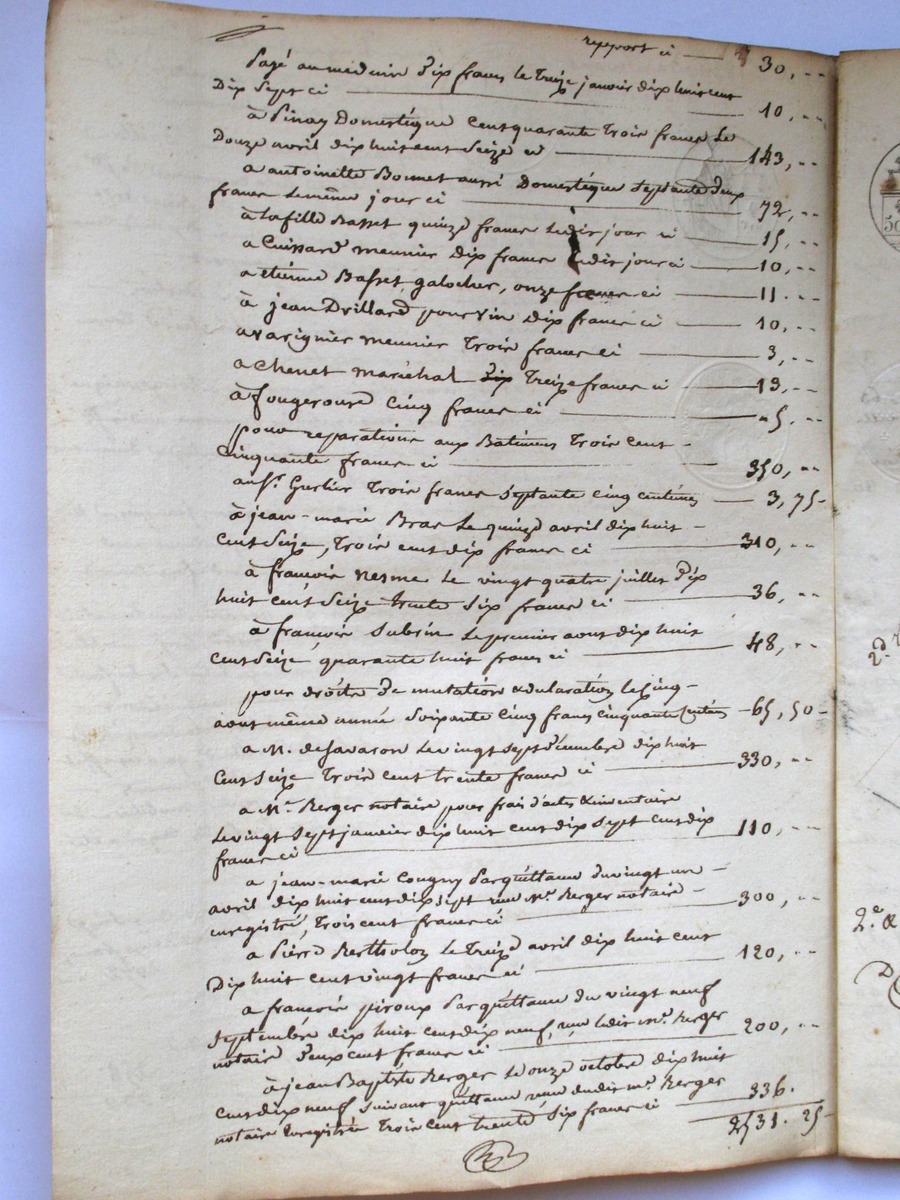 report ci — 30, --
Payé au médecin dix francs le treize janvier dix huit cent
Dix Sept ci — 10, --
à Pinay Domestique cent quarante trois francs le
Douze avril dix huit cent Seize ci — 143, --
a antoinette Bonnet aussi Domestique Septante deux
francs le même jour ci — 72, --
à la fille Basset quinze francs ledit jour ci — 15, --
a Cuissard meunier dix francs ledit jour ci — 10, --
a etiénne Basset galocher, onze francs ci — 11. --
à jean Drillard pour vin dix francs ci — 10, --
a varignier meunier trois francs ci — 3, --
a Chenet maréchal treize francs ci — 13. --
à fougerouse cinq francs ci — 5. --
pour reparations aux Batimens trois cent -
Cinquante francs ci — 350, --
au Sr. Gerlier trois francs Septante cinq centimes — 3, 75 -
à jean-marie Bras le quinze avril dix huit -
Cent Seize, trois cent dix francs ci — 310, --
à francois nesme le vingt quatre juillet dix
huit cent Seize trente Six francs ci — 36, --
à francois Subrin le premier aout dix huit
Cent Seize quarante huit francs ci — 48, --
pour droits de mutation & declaration le cinq -
aout même année Soixante Cinq francs cinquante centimes - 65, 50 -
a M. de Savaron le vingt Sept decembre dix huit
Cent Seize trois cent trente francs ci — 330, --
a Mr. Berger notaire pour frais d'actes & inventaire
le vingt Sept janvier dix huit cent dix Sept cent dix
francs ci — 110, --
a jean-marie Cougny par quittance du vingt un -
avril dix huit cent dix Sept reçu Mr. Berger notaire -
enregistré, trois cent francs ci — 300, --
a Pierre Bertholon le treize avril dix huit cent
Dix huit cent vingt francs ci — 120, --
a francois piroux par quittance du vingt neuf
Septembre dix huit cent dix neuf, reçu ledit Mr. Berger
notaire deux cent francs ci — 200, --
à jean Baptiste Berger le onze octobre dix huit
Cent dix neuf Suivant quittance reçue dudit Mr. Berger
notaire enregistrée trois cent trente Six francs ci — 336.
2531. 25 -